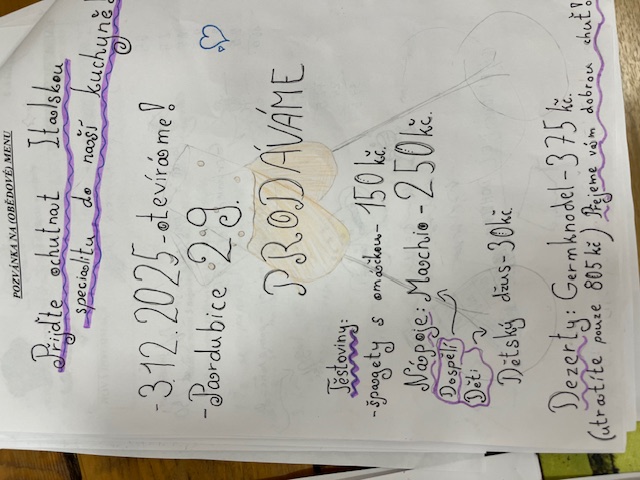 POZVÁNKA NA (OBĚDOVÉ) MENU
Přijďte ochutnat Italskou
specialitu do naší kuchyně!
- 3.12.2025 - otevíráme!
- Pardubice 29.
PRODÁVÁME
Těstoviny:
- špagety s omáčkou - 150 kč.
Nápoje: Machio - 250 kč.
Dospělí
Děti
Dětský džus - 30 kč
Dezerty: Germknodel - 375 kč.
(utratíte pouze 805 kč) Přejeme vám dobrou chuť!